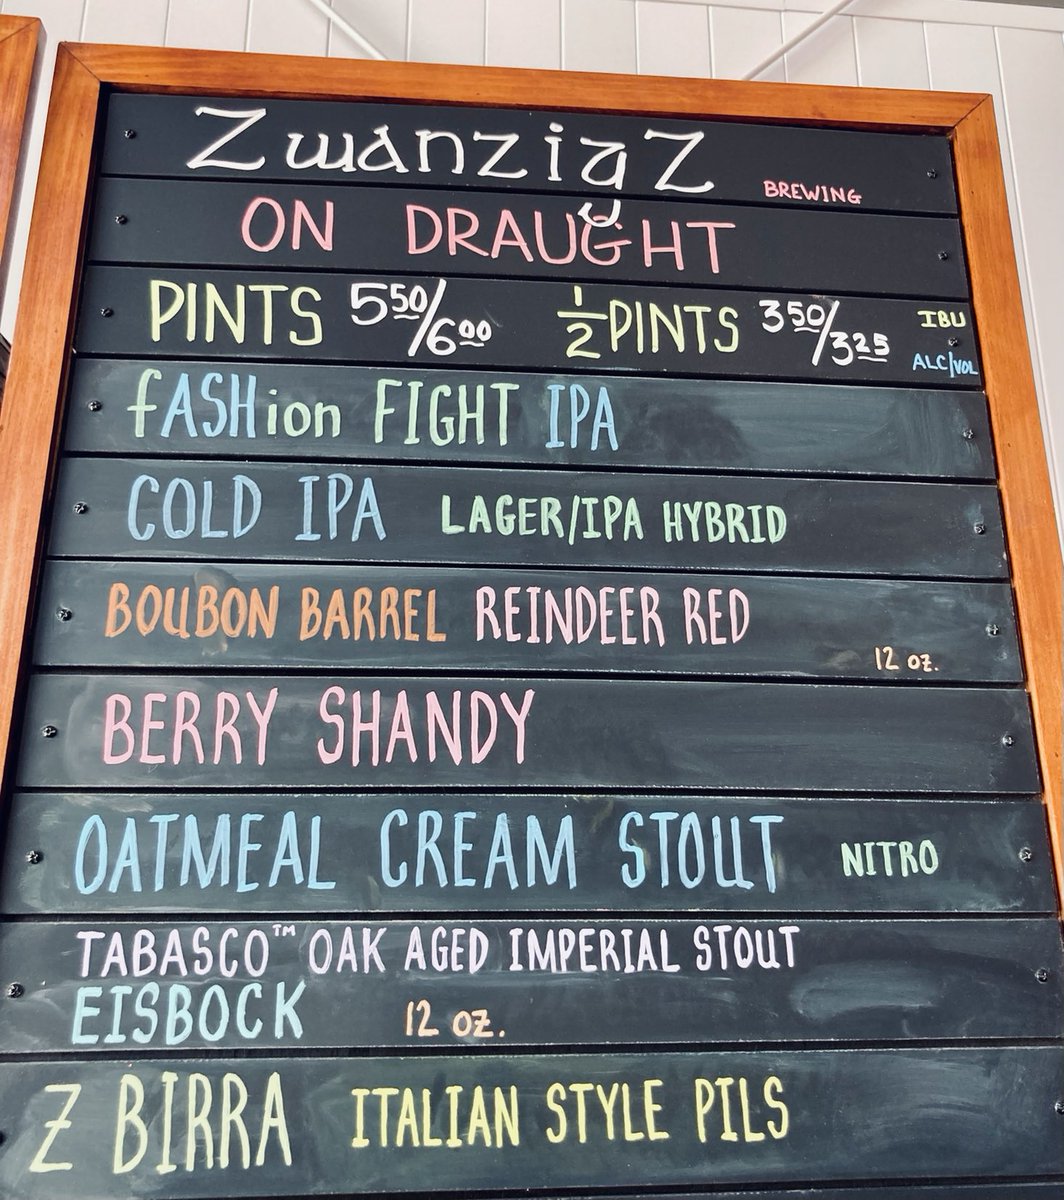 ZwanzigZ BREWING
ON DRAUGHT
PINTS 550/600 1/2 PINTS 350/325 IBU
ALC/VOL
fASHion FIGHT IPA
COLD IPA LAGER/IPA HYBRID
BOUBON BARREL REINDEER RED
12 oz.
BERRY SHANDY
OATMEAL CREAM STOUT NITRO
TABASCO™ OAK AGED IMPERIAL STOUT
EISBOCK 12 oz.
Z BIRRA ITALIAN STYLE PILS